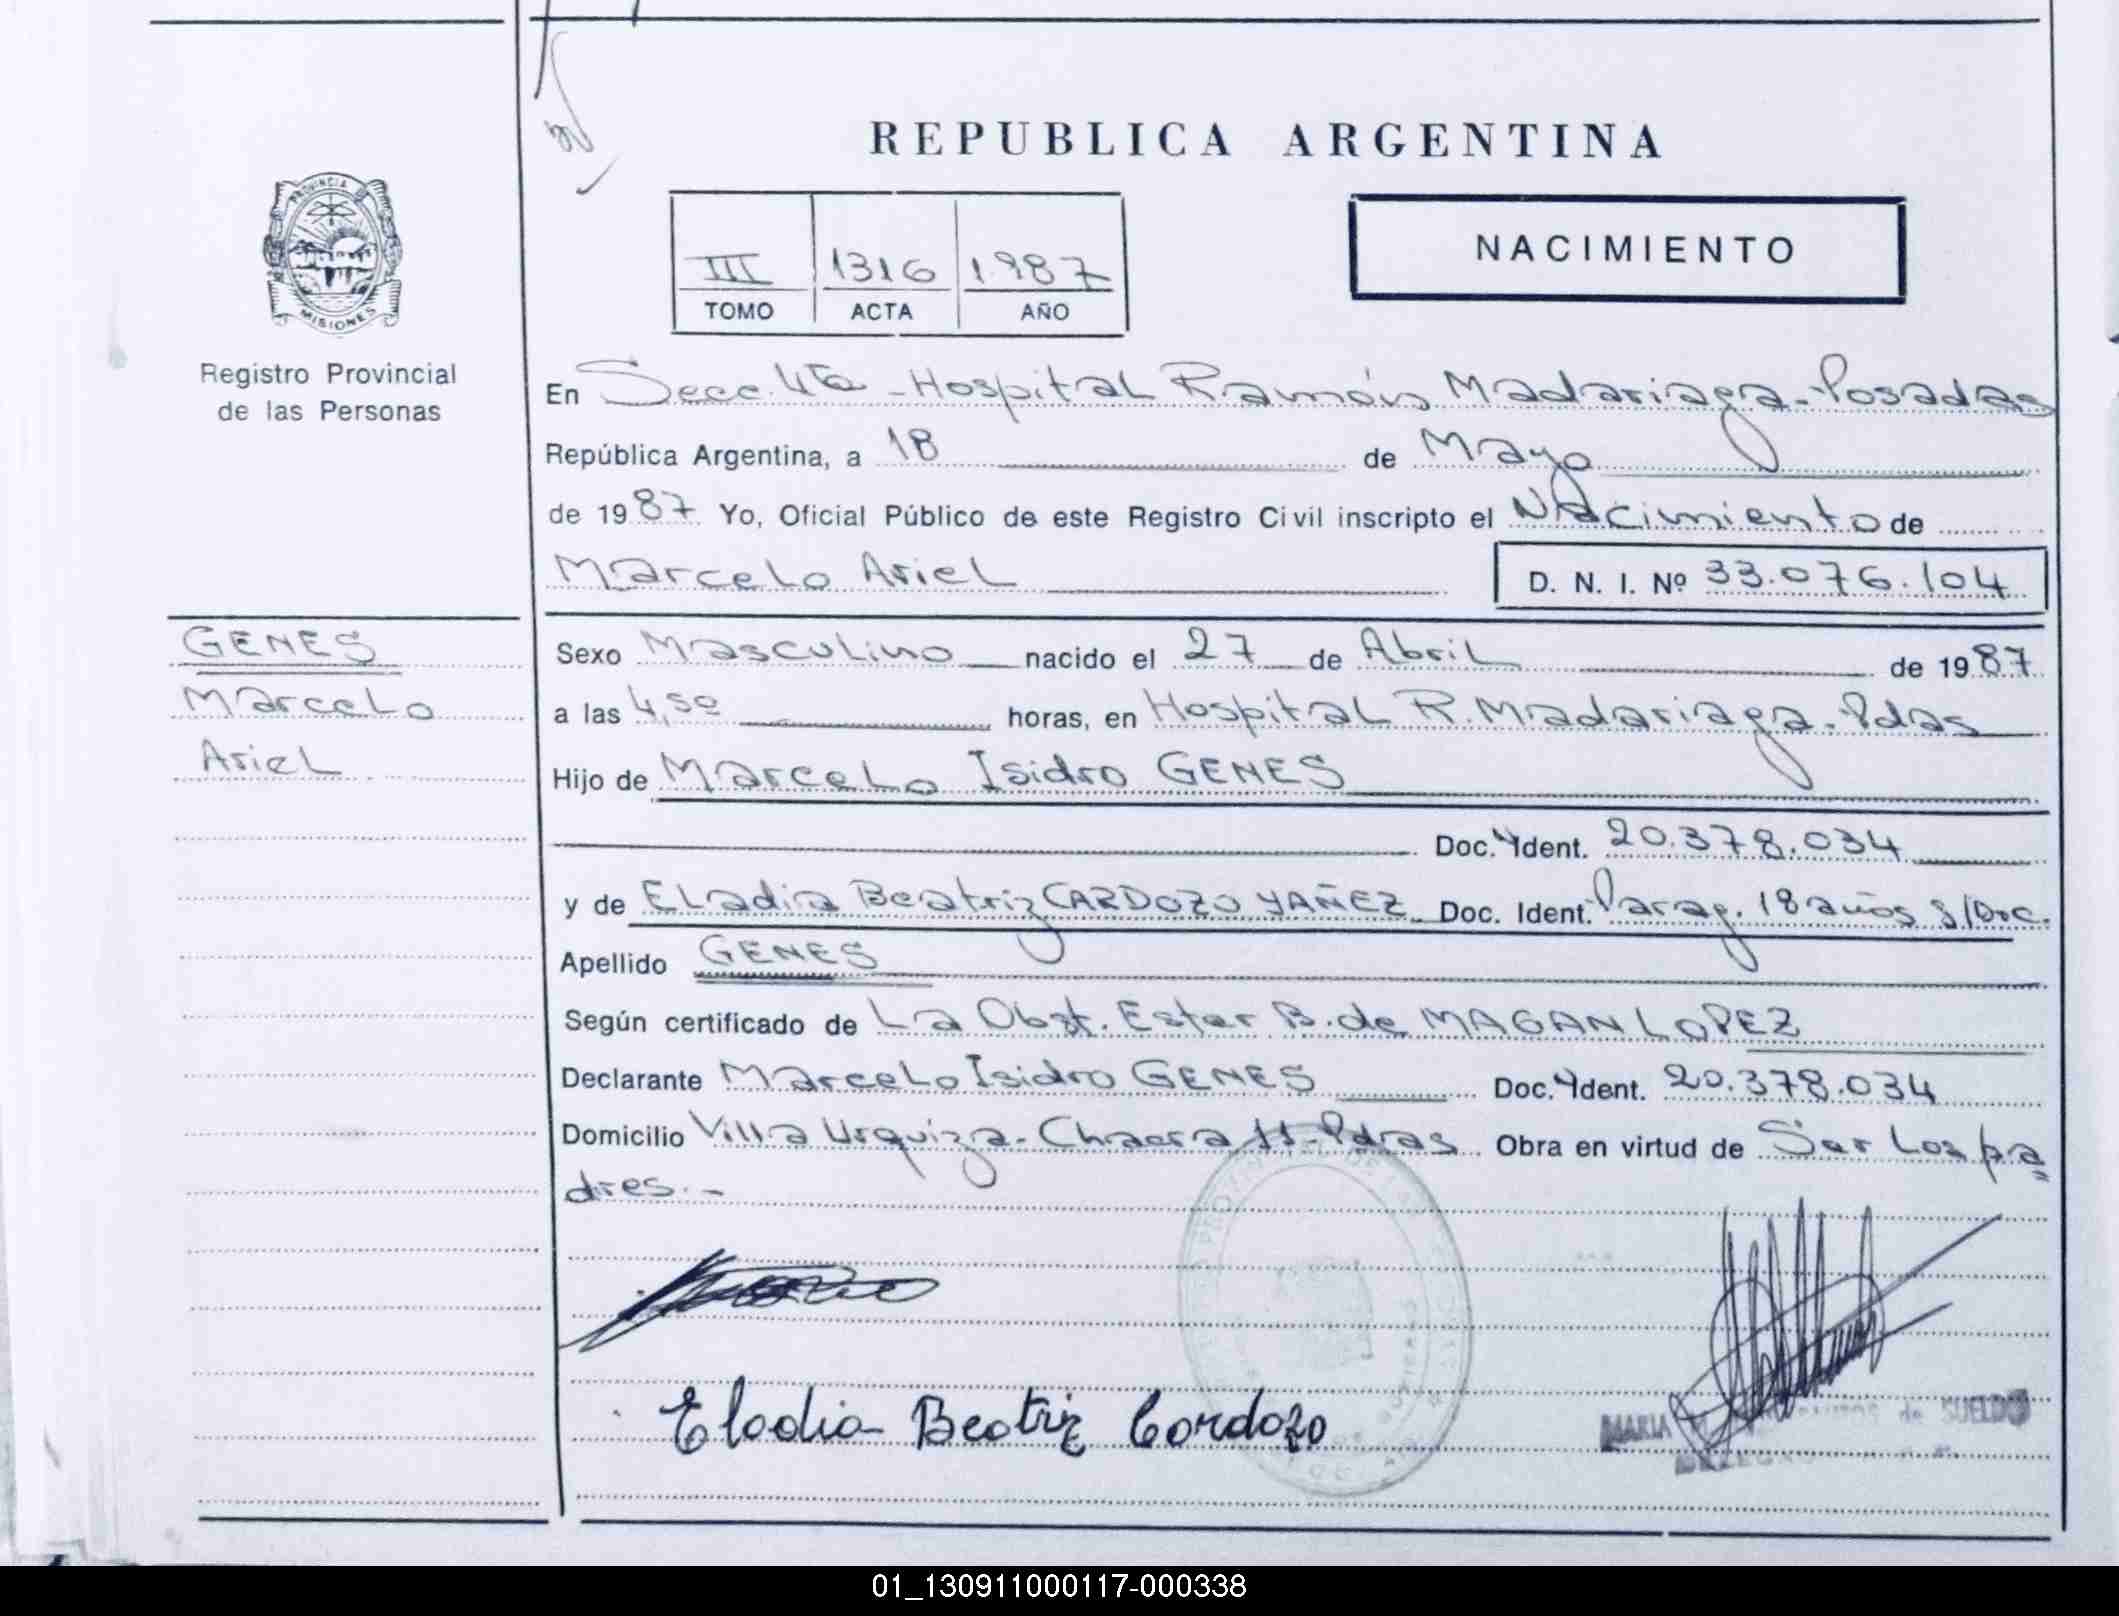 REPUBLICA ARGENTINA
PROVINCIA DE
MISIONES
Registro Provincial
de las Personas
III 1316 1987
TOMO ACTA AÑO
NACIMIENTO
En Secc. 4ta - Hospital Ramón Madariaga - Posadas
República Argentina, a 18 de Mayo
de 1987 Yo, Oficial Público de este Registro Civil inscripto el Nacimiento de
Marcelo Ariel D. N. I. Nº 33.076.104
GENES
Marcelo
Ariel
Sexo Masculino nacido el 27 de Abril de 1987
a las 4,50 horas, en Hospital R. Madariaga - Pdas
Hijo de Marcelo Isidro GENES
Doc. Ident. 20.378.034
y de Eladia Beatriz CARDOZO YAÑEZ Doc. Ident. Parag. 18 años s/Doc.
Apellido GENES
Según certificado de La Obst. Ester B. de MAGAN LOPEZ
Declarante Marcelo Isidro GENES Doc. Ident. 20.378.034
Domicilio Villa Urquiza - Chacra 11 - Pdas Obra en virtud de Ser Los pa=
dres.-
Eladia Beatriz Cardozo
MARIA de SUELDO
01_130911000117-000338